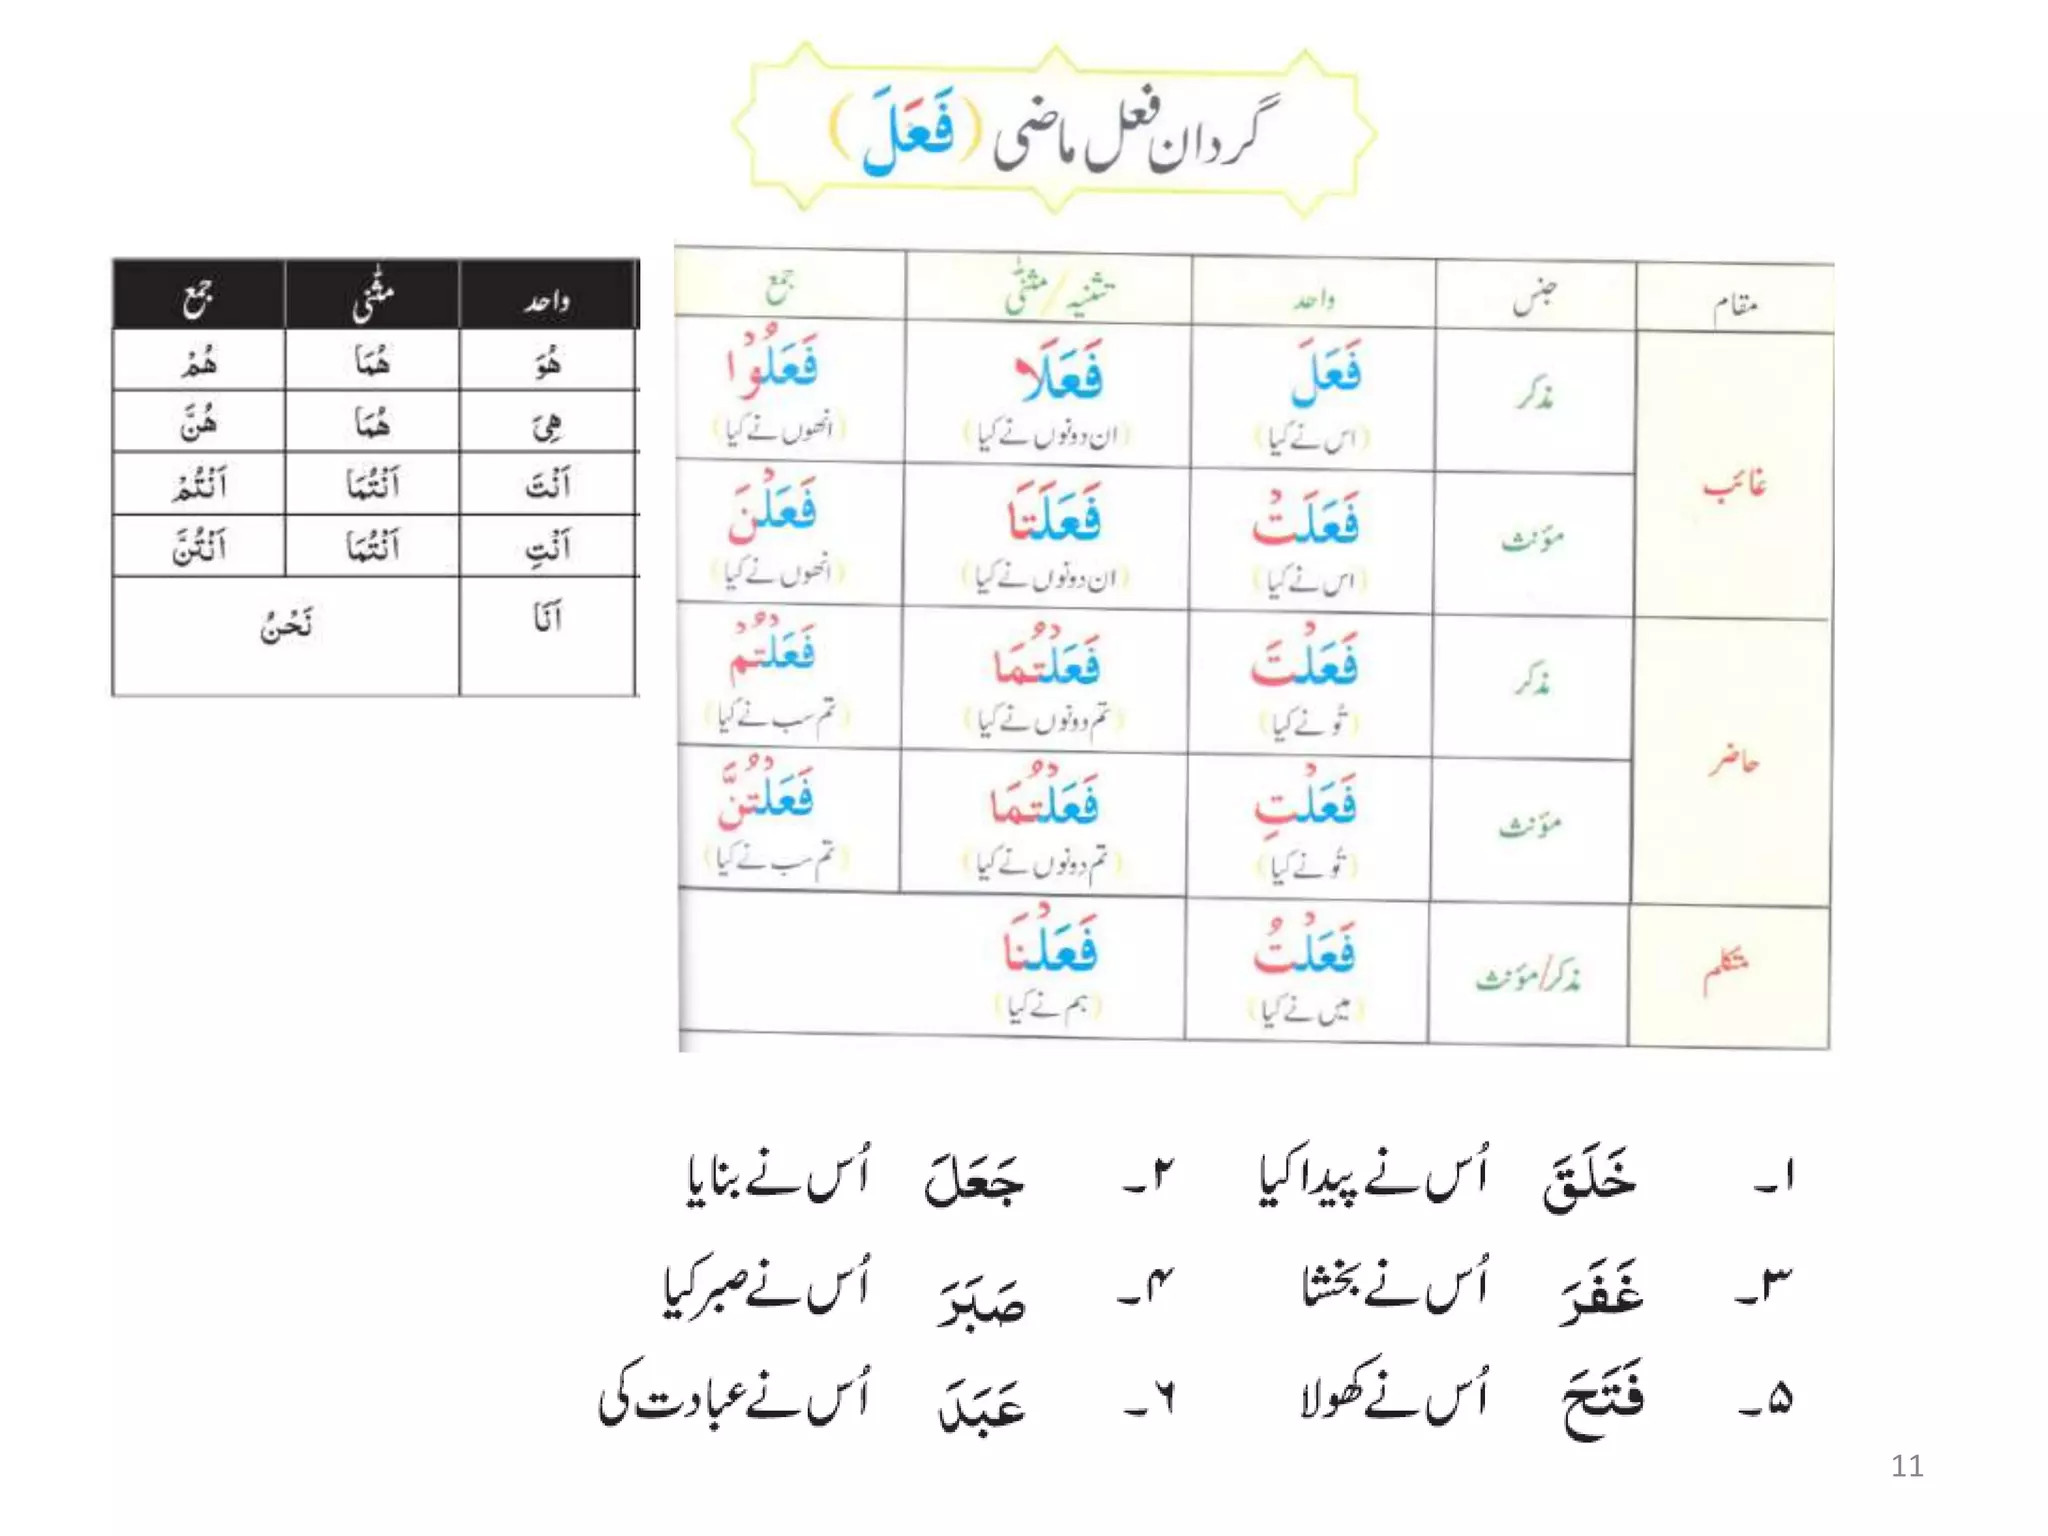 گردان فعل ماضی (فَعَلَ)
مقام جنس واحد تثنیہ/مثنّٰی جمع
غائب مذکر فَعَلَ فَعَلَا فَعَلُوْا
(اس نے کیا) (ان دونوں نے کیا) (انھوں نے کیا)
مؤنث فَعَلَتْ فَعَلَتَا فَعَلْنَ
(اس نے کیا) (ان دونوں نے کیا) (انھوں نے کیا)
حاضر مذکر فَعَلْتَ فَعَلْتُمَا فَعَلْتُمْ
(تُو نے کیا) (تم دونوں نے کیا) (تم سب نے کیا)
مؤنث فَعَلْتِ فَعَلْتُمَا فَعَلْتُنَّ
(تُو نے کیا) (تم دونوں نے کیا) (تم سب نے کیا)
متکلم مذکر/مؤنث فَعَلْتُ فَعَلْنَا
(میں نے کیا) (ہم نے کیا)
واحد مثنّٰی جمع
هُوَ هُمَا هُمْ
هِىَ هُمَا هُنَّ
اَنْتَ اَنْتُمَا اَنْتُمْ
اَنْتِ اَنْتُمَا اَنْتُنَّ
اَنَا نَحْنُ
۱۔ خَلَقَ اُس نے پیدا کیا ۲۔ جَعَلَ اُس نے بنایا
۳۔ غَفَرَ اُس نے بخشا ۴۔ صَبَرَ اُس نے صبر کیا
۵۔ فَتَحَ اُس نے کھولا ۶۔ عَبَدَ اُس نے عبادت کی
11